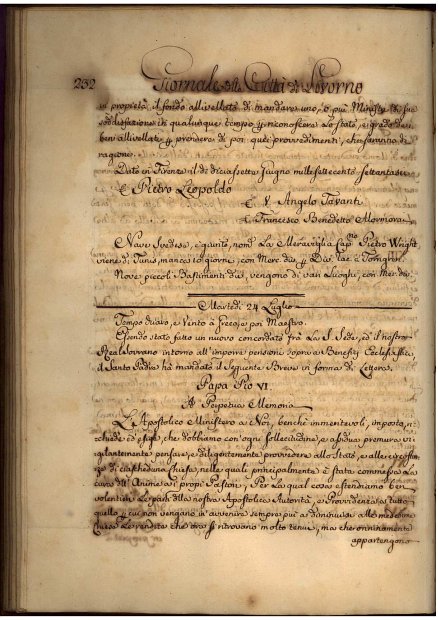 232 Giornale della Città di Livorno
di propietà il fondo allivellato di mandare uno, o più Ministri di sua
soddisfazione in qualunque tempo p riconoscere lo stato, e grado de
beni allivellati p prendere di poi quei provvedimenti, che saranno di
ragione.
Dato in Firenze il dì diciassette Giugno mille sette cento settantasei
Pietro Leopoldo
V. Angelo Tavanti
Francesco Benedetto Mormorai
Nave Svedese, è quì nomd. La Meraviglia Cap.no Pietro Wright
viene di Tunis, manca giorni, con Merc. div. p
Nove piccoli Bastimenti div. vengono di vari Luoghi, con Mer. div.
Martedì 24 Luglio
Tempo Vario, e Vento a poi Maestro.
Essendo stato fatto un nuovo concordato frà La S. Sede, ed il nostro
Real Sovrano intorno all' imporre pensioni sopra a Benefizj Ecclesiastici,
il Santo Padre hà mandato il seguente Breve in forma di Lettera.
Papa Pio VI.
A Perpetua Memoria
L'Apostolico Ministero a Noi, benchè immeritevoli, imposto, ri-
chiede ed esige, che dobbiamo con ogni sollecitudine, e assidua premura vi-
gilantemente pensare, e diligentemente provvedere allo Stato, e alle circostan-
ze di ciascheduna Chiesa, nelle quali principalmente è stata commessa la
cura dell' Anime ai propj Pastori, Per la qual cosa estendiamo ben
volentieri le parti della nostra Apostolica Autorità, e Provvidenza a tutto
quello p cui non vengano in avvenire sempre più a diminuirsi alle medesime
Chiese le rendite che ora si ritrovano molto tenui, ma che onninamente
appartengono